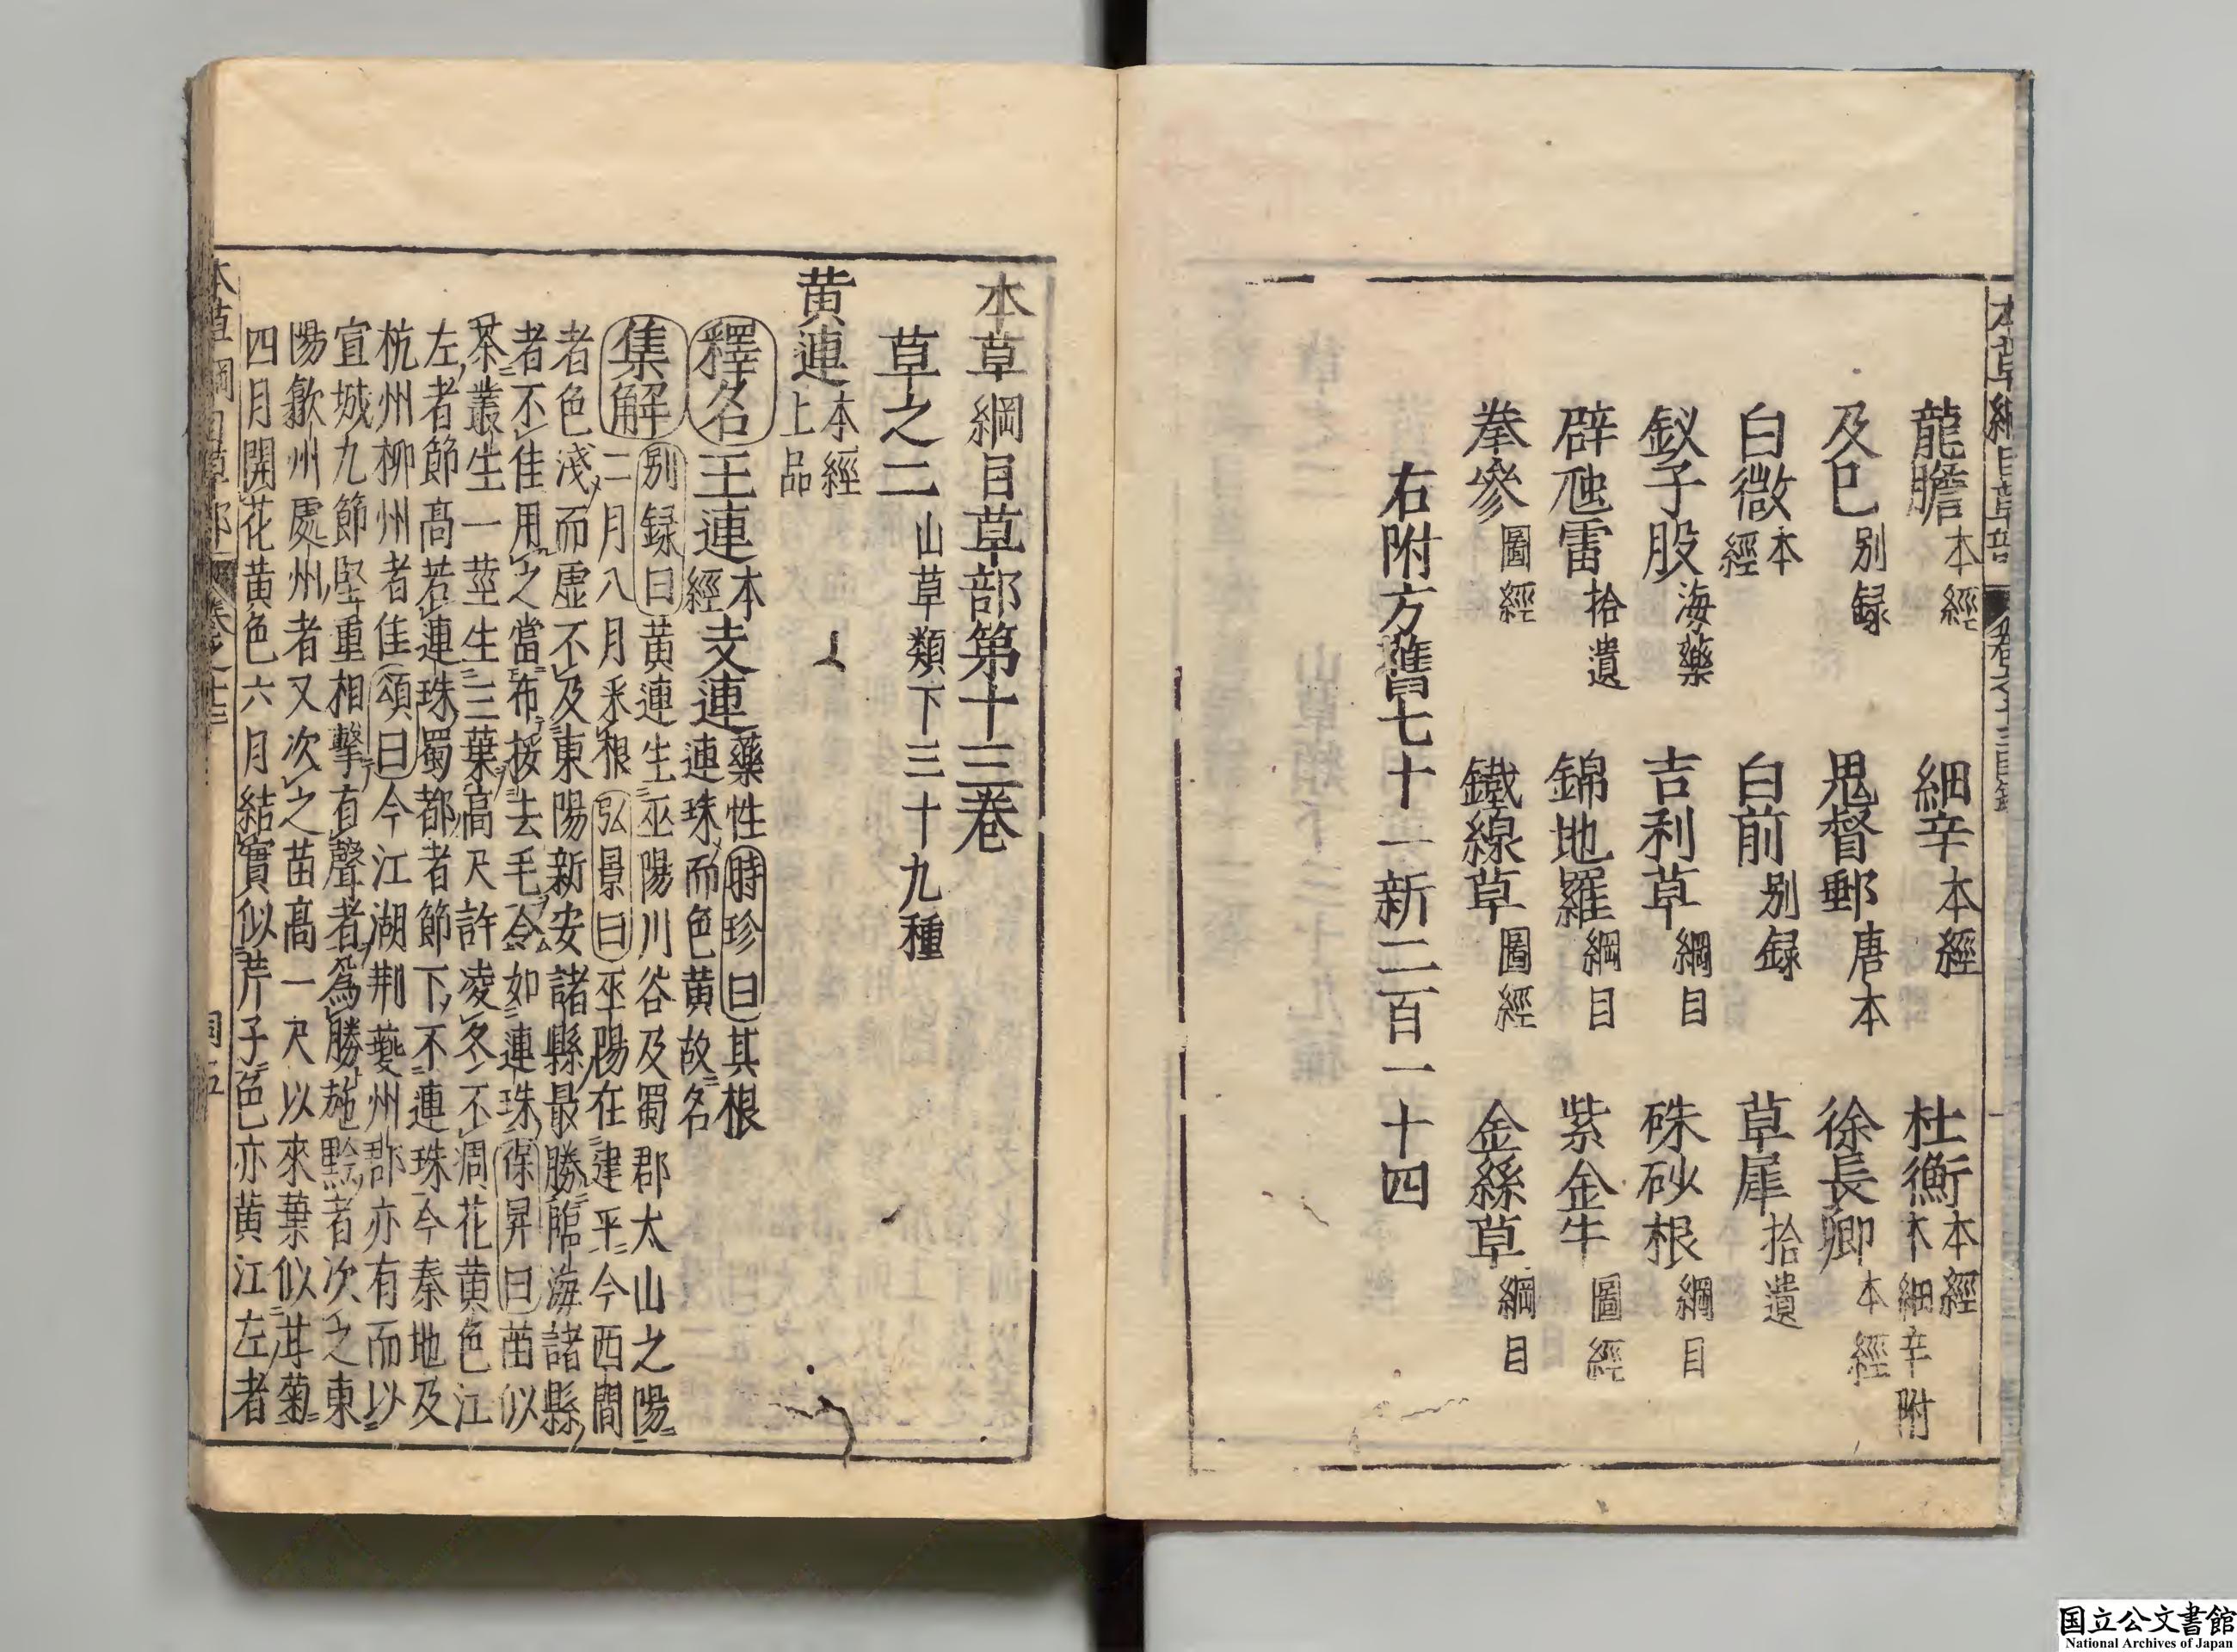 龍膽本經　細辛本經　杜衡本經木細辛附
及巳別録　鬼督郵唐本　徐長卿本經
白微本經　白前別録　草犀拾遺
釵子股海藥　吉利草綱目　硃砂根綱目
辟虺雷拾遺　錦地羅綱目　紫金牛圖經
拳參圖經　鐵線草圖經　金絲草綱目
右附方舊七十一新二百一十四
本草綱目草部第十三卷
草之二山草類下三十九種
黄連本經上品
釋名王連本經支連藥性時珍曰其根連珠而色黄故名
集解別録曰黄連生巫陽川谷及蜀郡太山之陽
二月八月采根弘景曰巫陽在建平今西間
者色淺而虚不及東陽新安諸縣最勝臨海諸縣
者不佳用之當布挼去毛令如連珠保昇曰苗似
茶叢生一莖生三葉高尺許凌冬不凋花黄色江
左者節高若連珠蜀都者節下不連珠今秦地及
杭州柳州者佳頌曰今江湖荆夔州郡亦有而以
宣城九節堅重相擊有聲者為勝施黔者次之東
陽歙州處州者又次之苗高一尺以來葉似甘菊
四月開花黄色六月結實似芹子色亦黄江左者
国立公文書館
National Archives of Japan